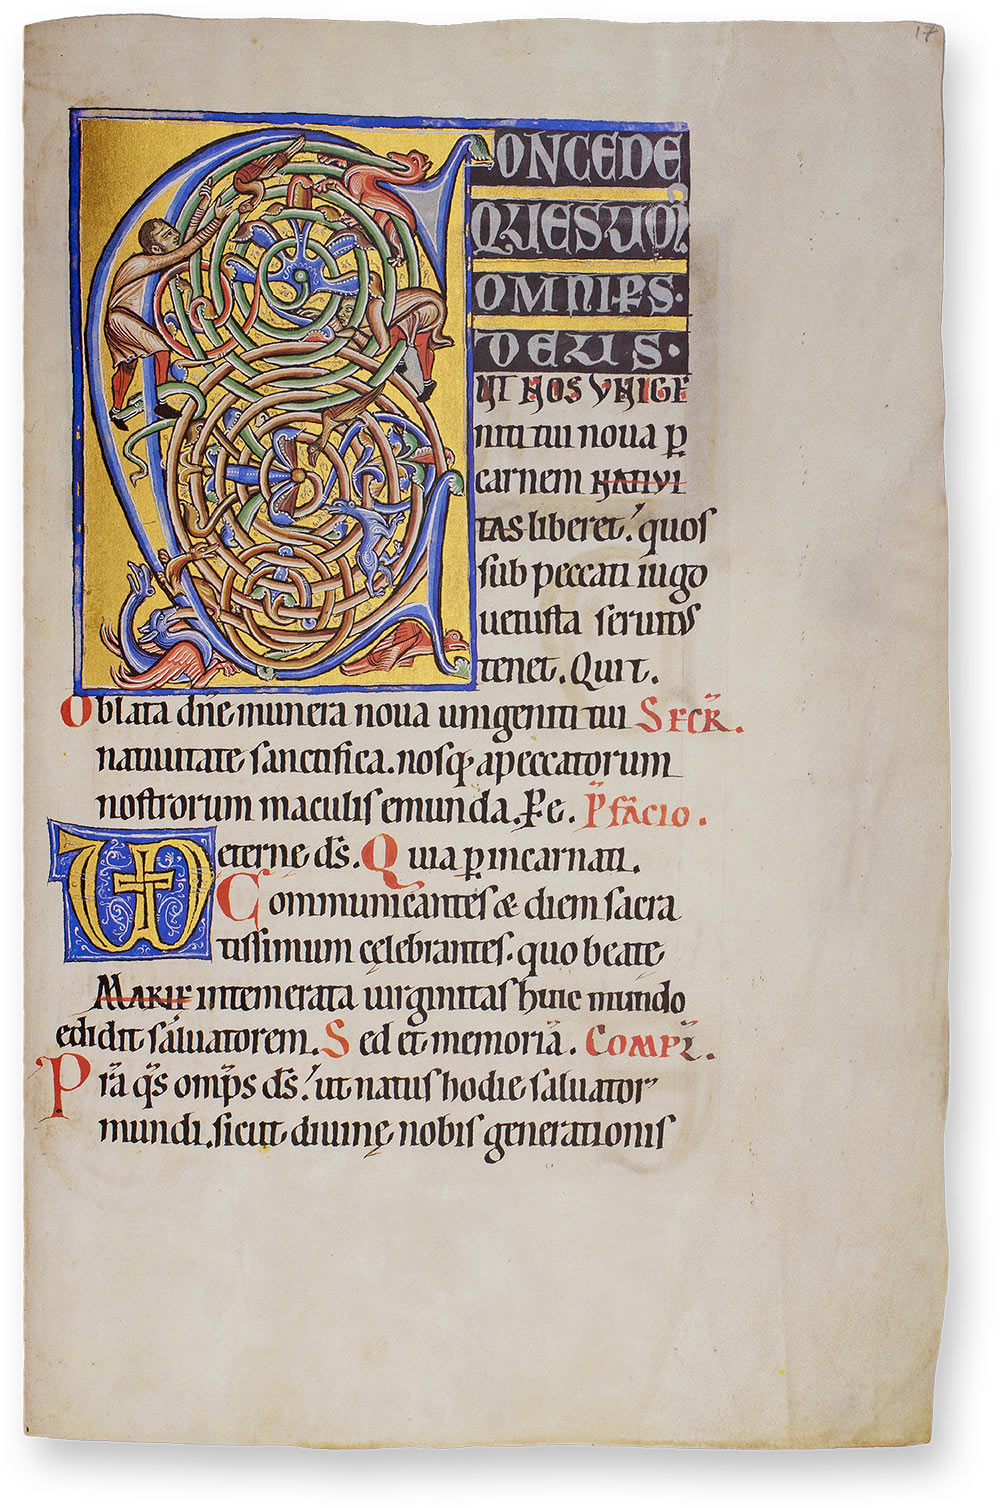 17
CONCEDE
QUESUMꝰ
OMNIP̅S.
DEUS.
UT NOS UNIGE
niti tui noua ꝑ
carnem NATIVI
TAS liberet. quos
sub peccati iugo
uetusta seruitus
tenet. Qui t.
Oblata dn̅e munera noua unigeniti tui SECR̅.
natiuitate sanctifica. nosq; a peccatorum
nostrorum maculis emunda. P̅e. P̅facio.
VD eterne d̅s. Quia ꝑ incarnati.
Communicantes & diem sacra
tissimum cęlebrantes. quo beate
MARIE intemerata uirginitas huic mundo
edidit saluatorem. Sed et memoria̅. COMPL̅.
Pr̅a q̅s omp̅s d̅s. ut natus hodie saluator
mundi. sicut diuinę nobis generationis